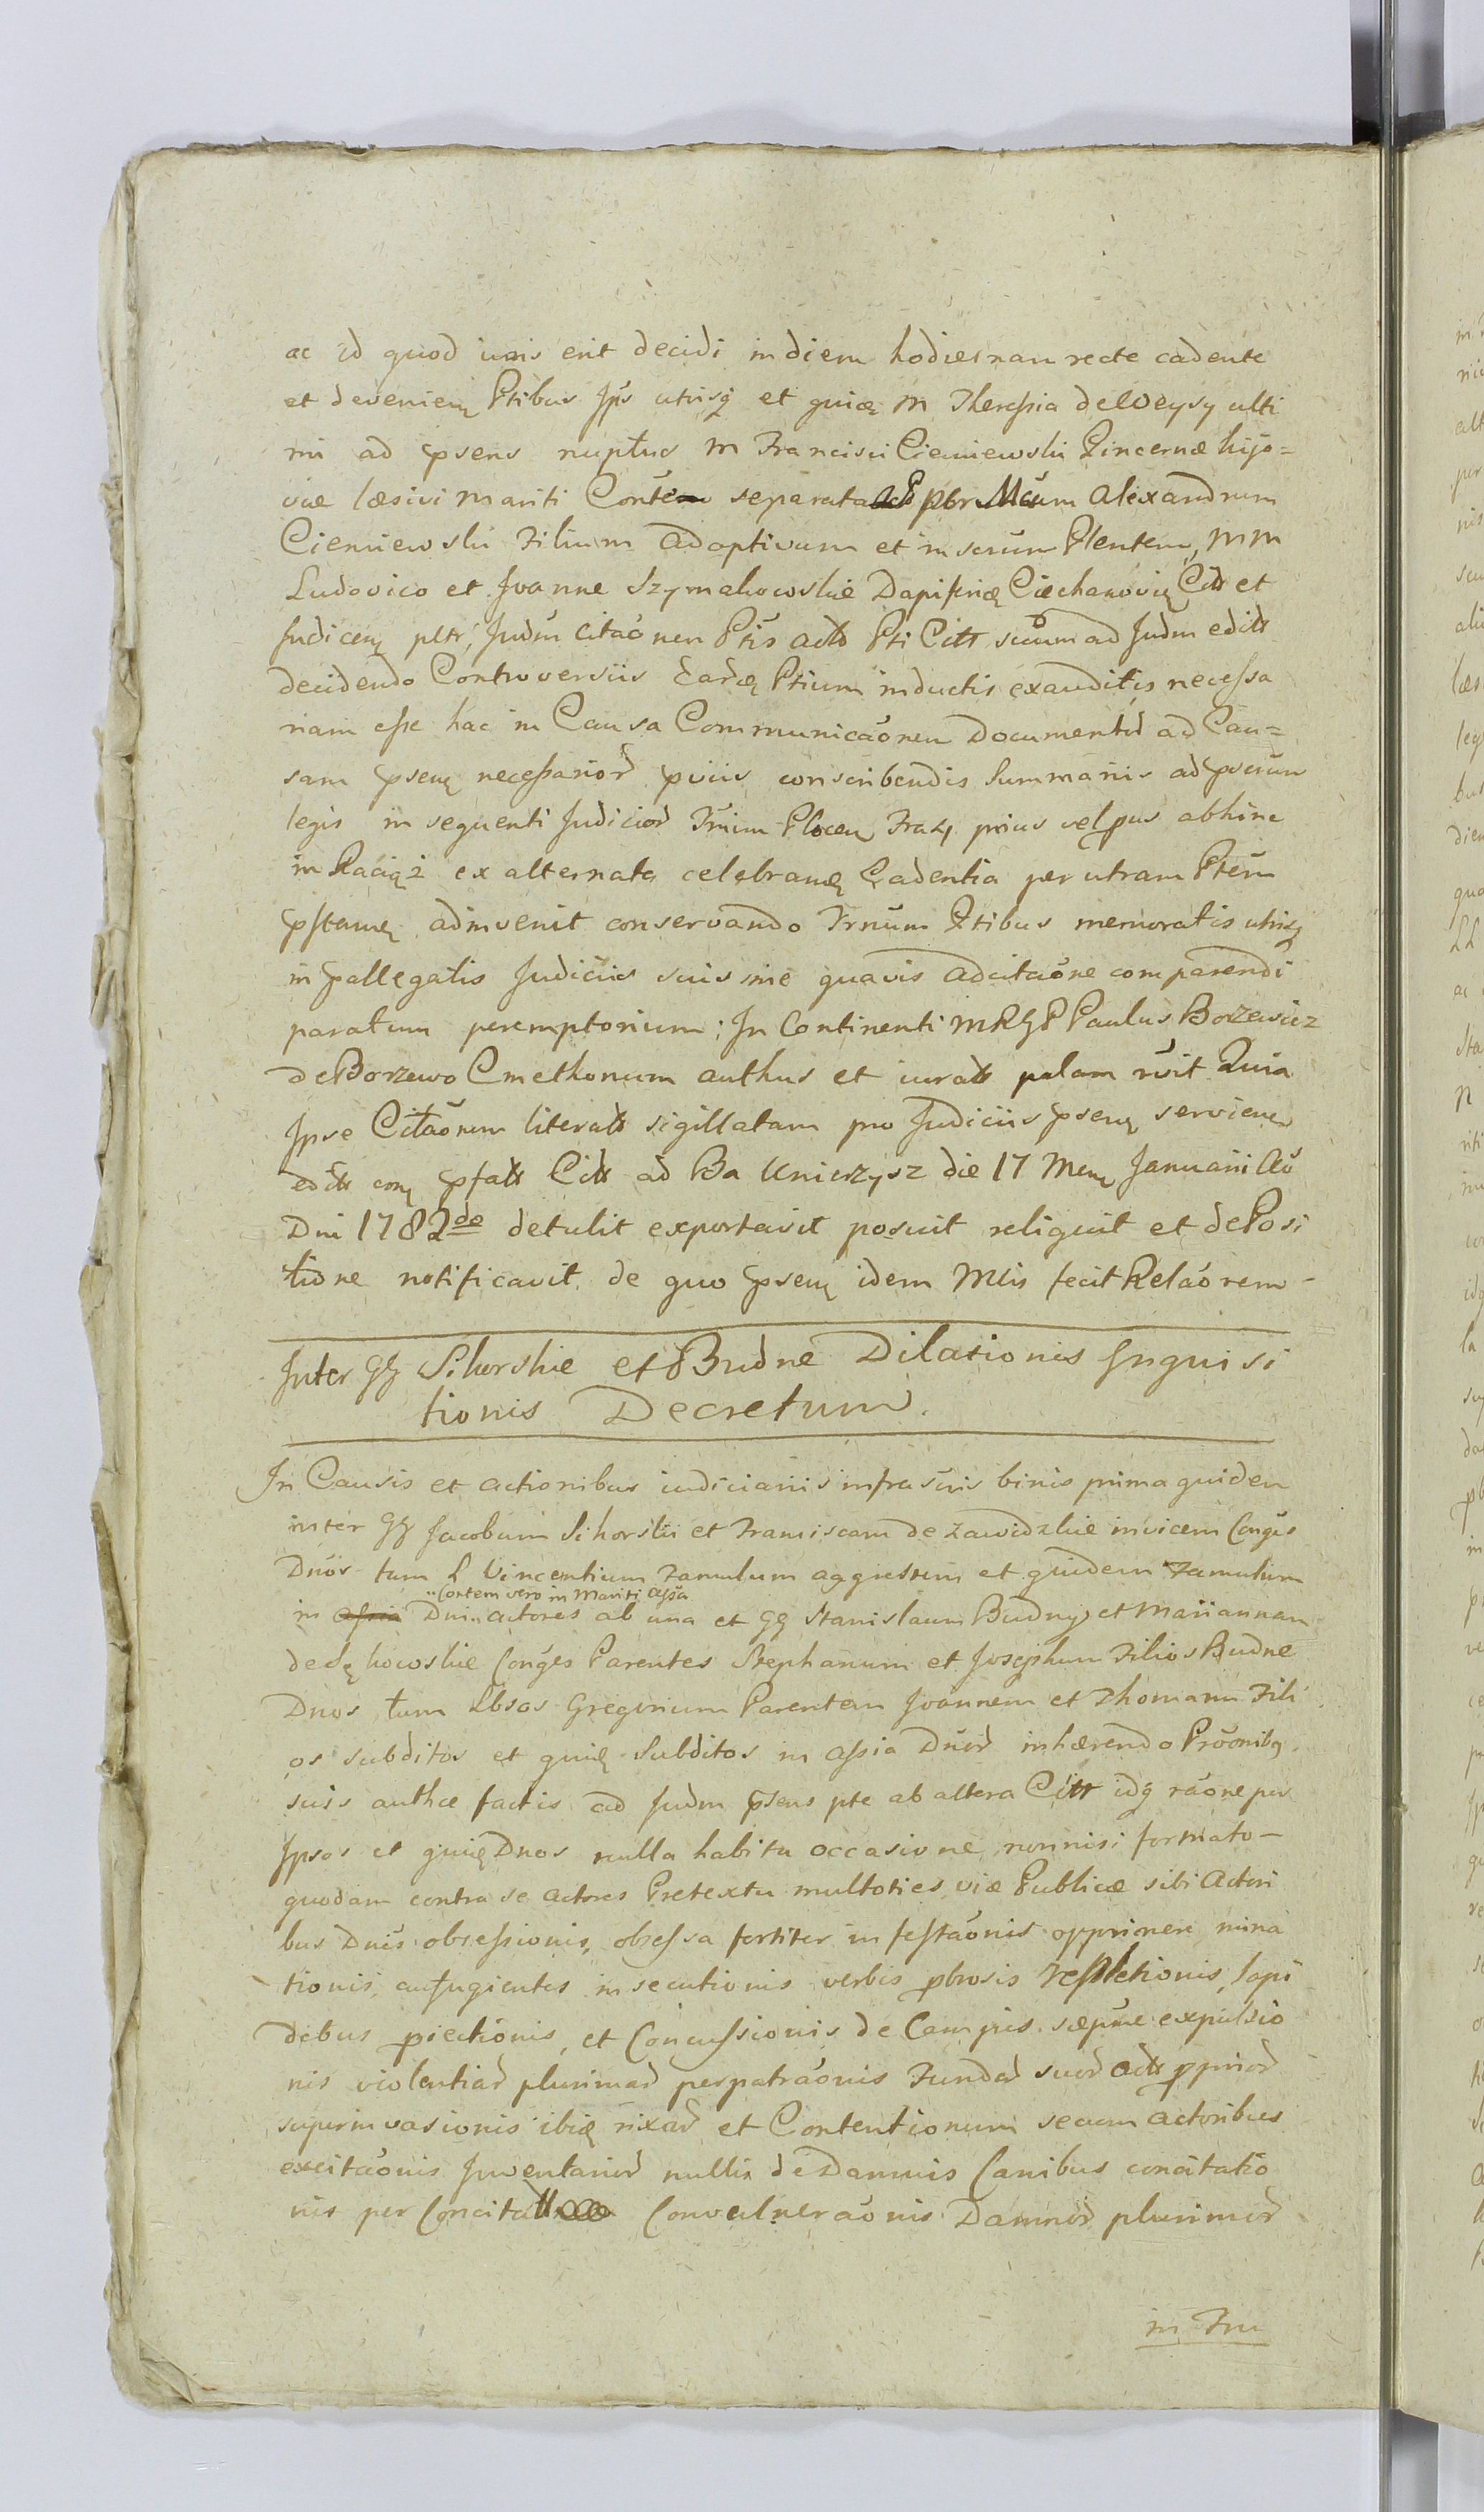 ac id quod iuris erit decidi in diem hodiernam recte cadente
et deveniem Ptibus Ips utrisq et quide M Theressia de Weysy ulti
mi ad psens nuptus M Francisci Cieniewski Pincernæ kijo=
viæ læsivi mariti Conte separata Alexandrum
Cieniewski Filium adoptivum et inserum Ptentem, MM
Ludovico et Joanne Szymakowskie Dapiferidæ Ciechanoviæ Citt et
Judicem pltr, Judm Citaonen Ptis actt Pti Citt suum ad Judm editt
decidendo Controversiis earde Ptium inductis exauditis necessa
riam esse hac in Causa Communicaonem Documentor ad Cau=
sam psem necessarior pviis conscribendis Summariis ad pscrum
legis in sequenti Judicior Trnim Plocen Fra prius vel pus abhinc
in Raciąż ex alternata celebrande Cadentia per utram Ptem
pstande adinvenit conservando Trnum Ptibus memoratis utrisq
in pallegatis Judiciis suis sine quavis adcitaone comparendi
paratum peremptorium; In Continenti MRGP Paulus Borzewicz
de Borzewo Cmethonum authus et iuratt palam rvit Quia
Ipse Citaonem literatt sigillatam pro Judiciis psem servien
editt pfatt Citt ad Ba Unierzysz die 17 Mem Januarii Ao
Dni 1782do detulit exportavit posuit reliquit et de Posi
tione notificavit de quo psem idem Mlis fecit Relaorem -
Inter GG Sikorskie et Budne Dilationis Inquisi
tionis Decretum.
In Causis et actionibus iudiciariis infrascris binis prima quidem
inter GG Jacobum Sikorski et Franciscam de Zawidzkie invicem Conges
Dnos tum L Vincentium Famulum aggressum et quidem Famulum
Contem vero in Mariti assa
in Dni actores ab una et GG Stanislaum Budny et Mariannam
de Sękowskie Conges Parentes Stephanum et Josephum Filios Budne
Dnos tum Lbsos Gregorium Parentem Joannem et Thomam Fili
os subditos et quide Subditos in assia Dnor inhærendo Prvonibq
suis authce factis ad Judm psens pte ab altera Citt idq raone per
Ipsos et quide Dnos nulla habita occasione, nonnisi formato-
quodam contra se actores Pretextu multoties viæ Publicæ sibi Actori
bus Dnis obsessionis, obsessa fortiter infestaonis opprimere mina
tionis, aufugientes insecutionis verbis pbrosis repletionis, lapi
dibus piectionis, et Concussionis de Campis sæpme expulsio
nis violentiar plurimar perpatraonis Fundor suor actt pprior
superinvasionis ibide rixar et Contentionum secum actoribus
excitaonis Juventarior nullis de Damnis Canibus concitatio
nis per Concita Convulneraonis Damnor plurimor
in Fru